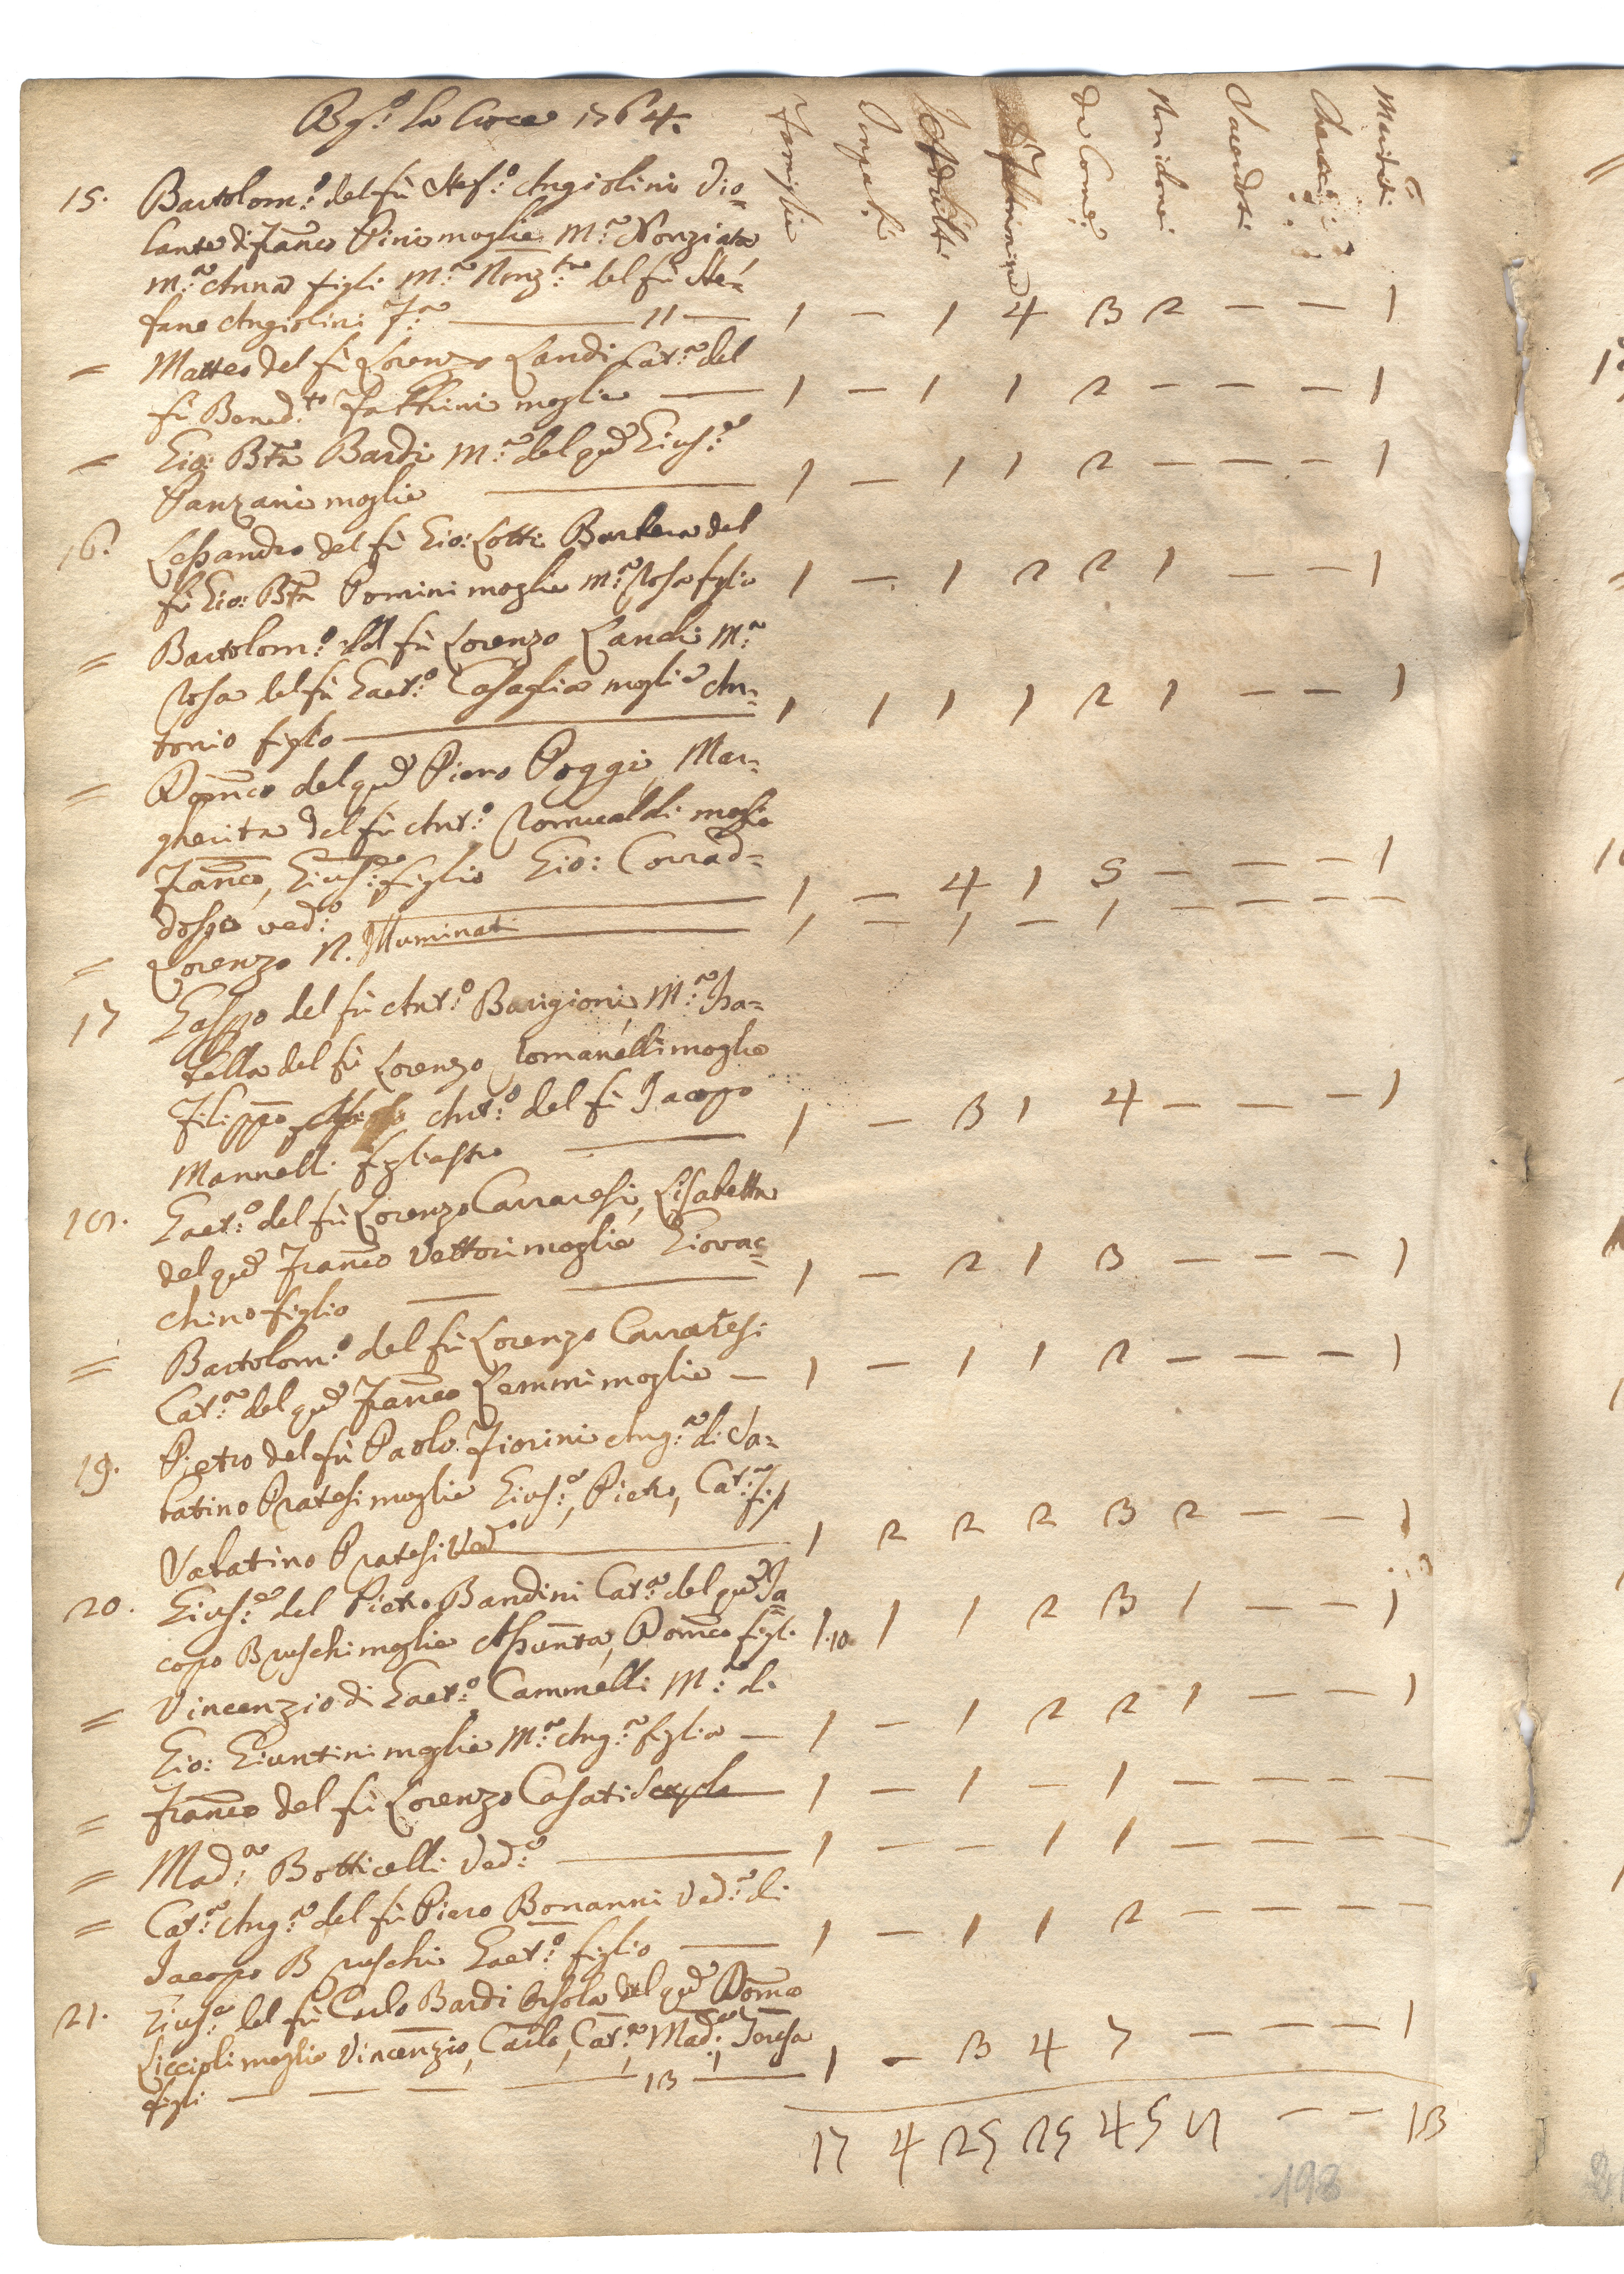 Bg.º la Croce 1764.
Famiglie Impub.i Adulti Femmine da Com.e Non idonei Sacerdoti Cherici Mariti
15. Bartolom.º del fù Stef.º Angiolini Vio=
lante di Fran.co Pini moglie M.a Nonziata
M.a Anna figli M.a Nonz.ta del fù Ste=
fano Angiolini — 11 — 1 — 1 4 3 2 — — 1
= Matteo del fù Lorenzo Landi Cat.a del
fù Bened.to Fattrini moglie — 1 — 1 1 2 — — — 1
= Gio: Bta Bardi M.a del qm Gius.e
Panzani moglie — 1 — 1 1 2 — — — 1
16. Lessandro del fù Gio: Lotti Barbera del
fù Gio: Bta Pomini moglie M.a Rosa figlia 1 — 1 2 2 1 — — 1
= Bartolom.º del fù Lorenzo Landi M.a
Rosa del fù Gaet.º Casaglia moglie An=
tonio figlio — 1 1 1 1 2 1 — — 1
= Dom.co del qm Piero Poggi, Mar=
gherita del fù Ant.º Romualdi moglie
Fran.co, Gius.e figlio Gio: Corrad=
dosso ved.º 1 — 4 1 5 — — — 1
= Lorenzo N. Illuminati 1 — 1 — 1 — — — —
17 Gaspo del fù Ant.º Barigioni M.a Isa=
bella del fù Lorenzo Romanelli moglie
Filippo, Ant.º del fù Jacopo
Mannelli figliastro — 1 — 3 1 4 — — — 1
18. Gaet.º del fù Lorenzo Carraresi, Lisabetta
del qm Fran.co Vettori moglie Giovac=
chino figlio — — 1 — 2 1 3 — — — 1
= Bartolom.º del fù Lorenzo Carraresi
Cat.a del qm Fran.co Lemmi moglie — 1 — 1 1 2 — — — 1
19. Pietro del fù Paolo Fiorini Ang.a di Sa=
batino Pratesi moglie Gius.e, Pietro, Cat.a figl
Sabatino Pratesi Ved.º — 1 2 2 2 3 2 — — 1
20. Gius.e del Pietro Bandini Cat.a del qm Ja=
copo Bruschi moglie Assunta, Dom.co figli 1.10 1 1 2 3 1 — — 1
= Vincenzio di Gaet.º Cammelli M.a di
Gio: Giuntini moglie M.a Ang.a figlia — 1 — 1 2 2 1 — — 1
= Fran.co del fù Lorenzo Casati — 1 — 1 — 1 — — — —
= Mad.a Botticelli Ved.a — 1 — — 1 1 — — — —
= Cat.a Ang.a del fù Piero Bonanni Ved.a di
Jacopo Bruschi Gaet.º figlio — 1 — 1 1 2 — — — —
21. Gius.e del fù Carlo Bardi Orsola del qm Dom.co
Liccioli moglie Vincenzio, Carlo, Cat.a Mad.a, Teresa
figli — — — — 13 — 1 — 3 4 7 — — — 1
17 4 25 25 45 8 — — 13
198